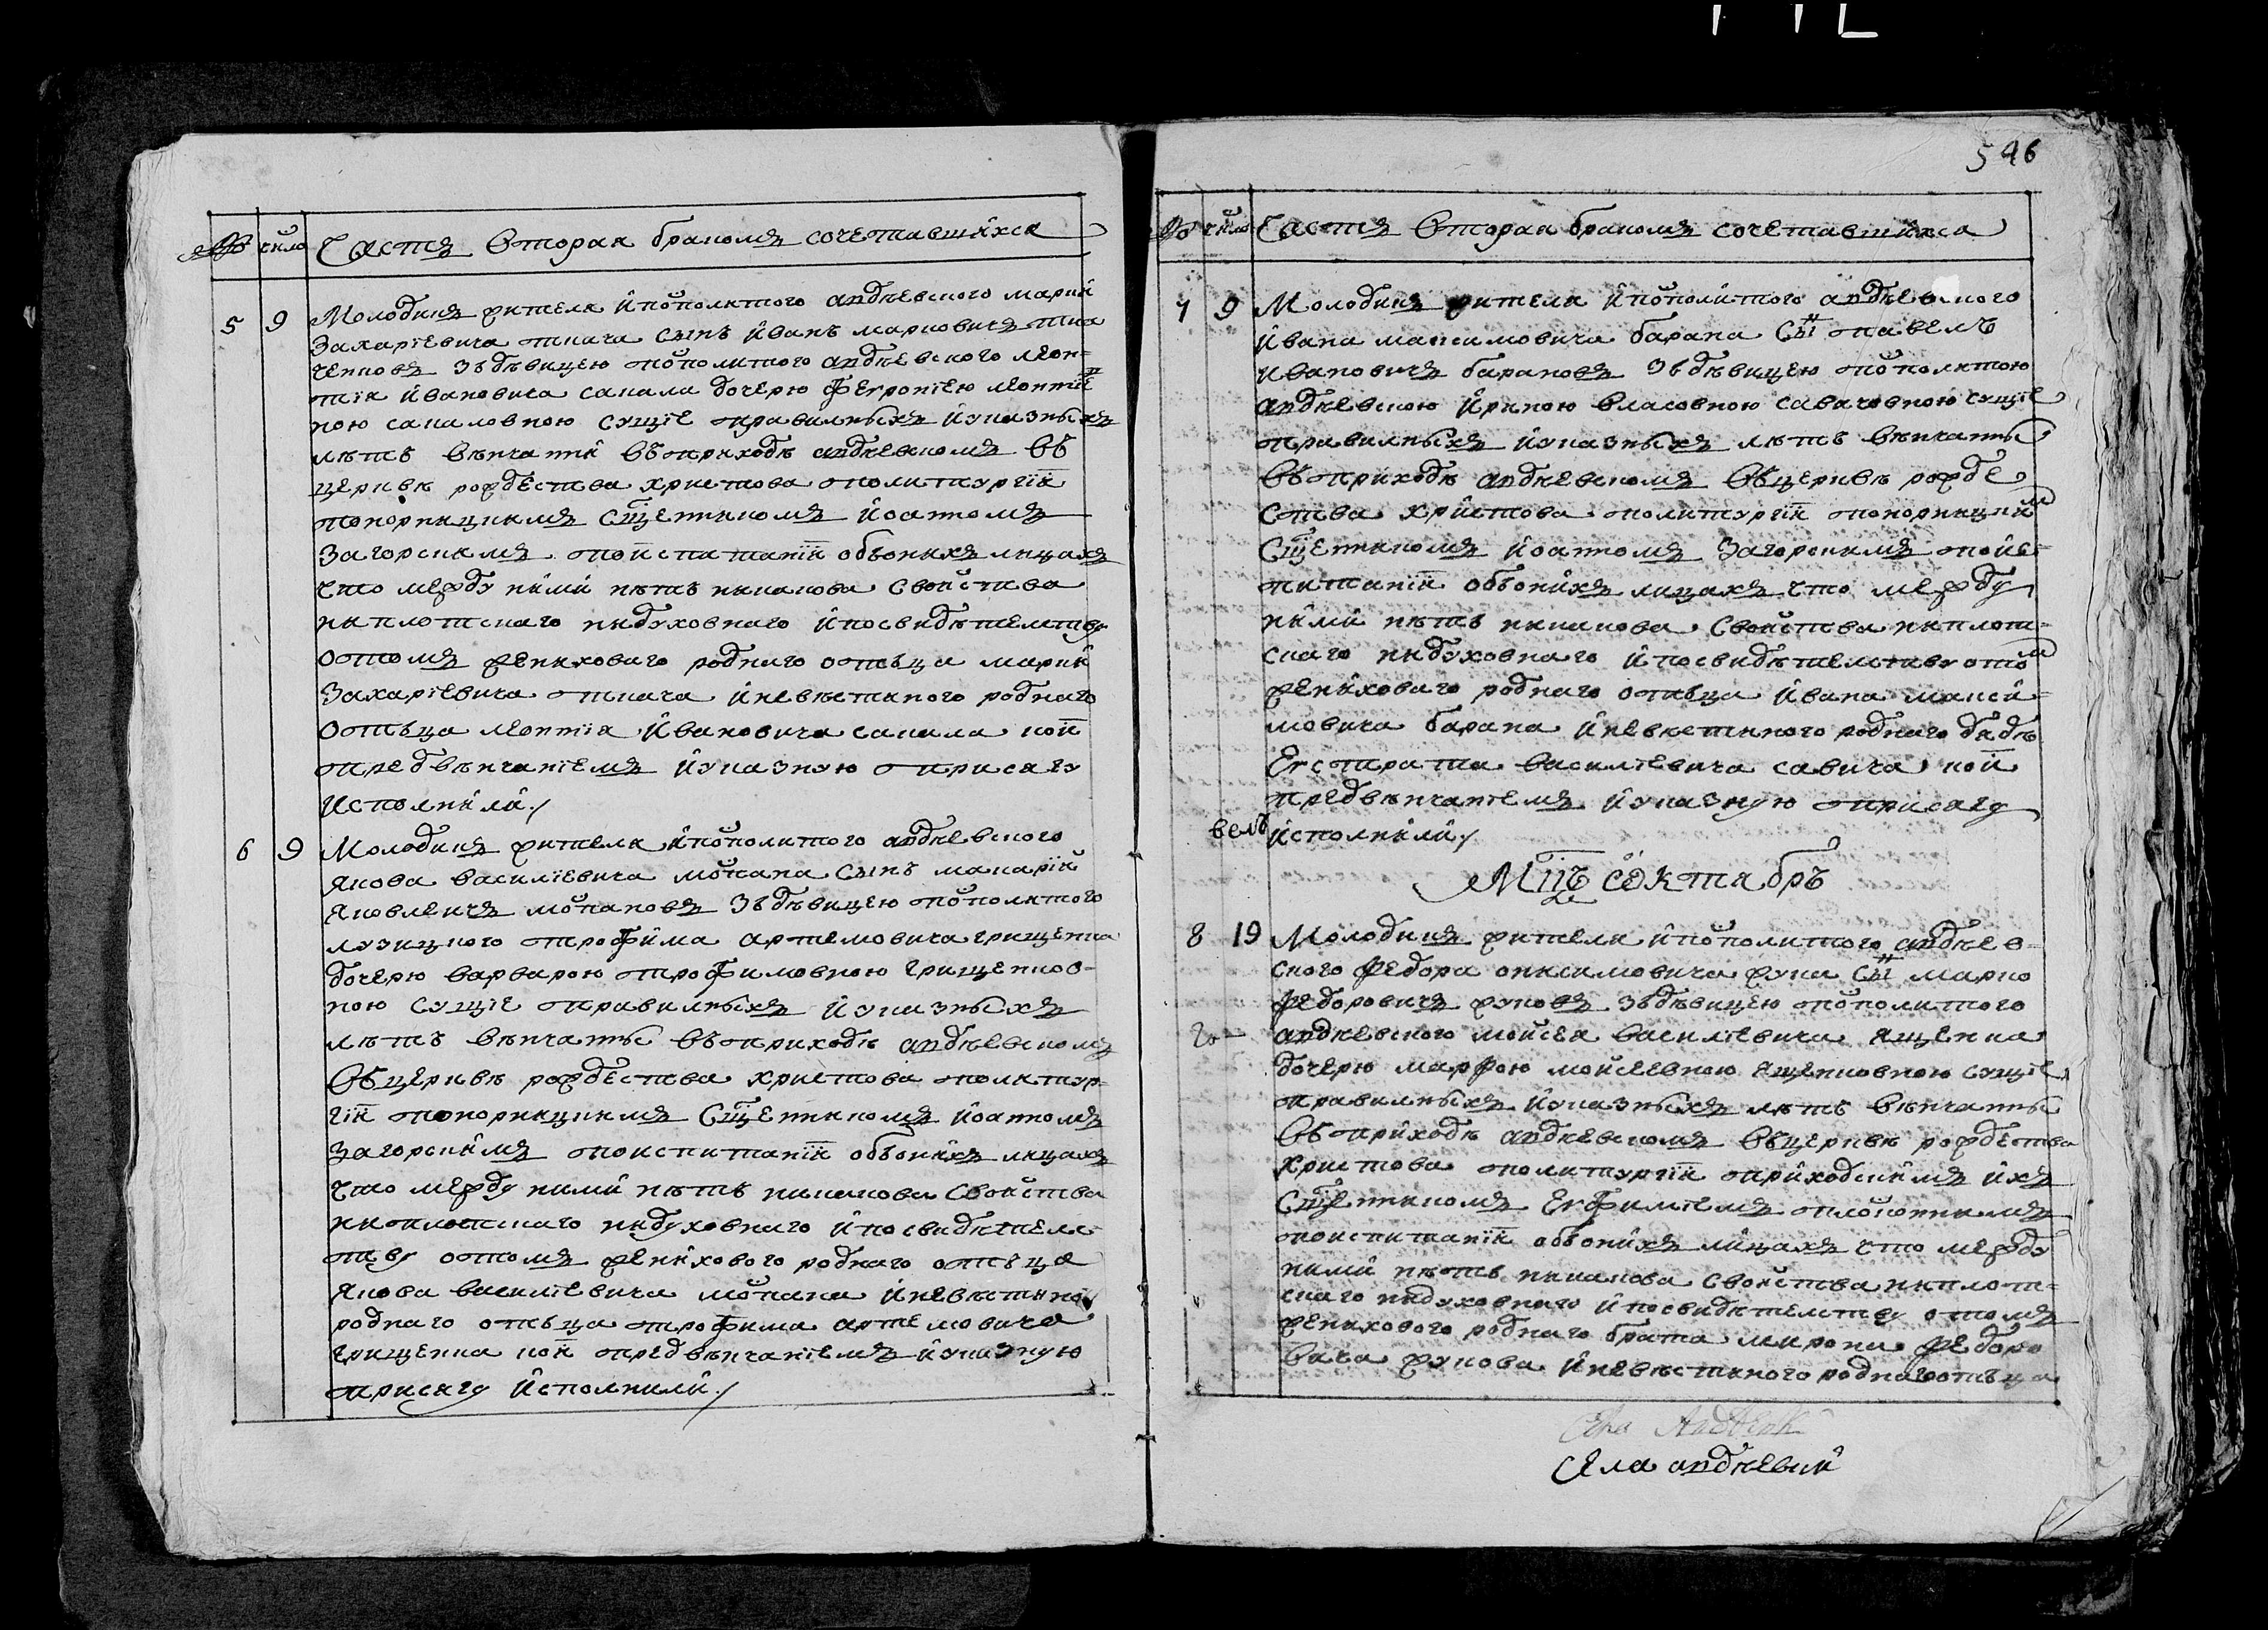 № число Часть вторая бракомъ сочетавшихся
5 9 Молодикъ жителя и посполитого авдѣевского марки
Захарїевича ткача сынъ иванъ марковичъ ткa
ченковъ зъ дѣвицею посполитого авдѣевского леон-
тїя ивановича сакала дочерю феѵронїею леонтїе
ною сакаловною сущїе правилныхъ и указныхъ
лѣтъ вѣнчанни въ приходѣ авдѣевскомъ въ
церквѣ рождества христова по литургїи
топорницкимъ сщенникомъ иоанномъ
загорскимъ по испитанїи обѣонихъ лицахъ
что между ними нѣтъ никакова свойства
ни плотскаго ни духовнаго и по свидѣтелству
о томъ женихового родного отъца марки
Захарїевича ткача и невѣстиного родного
отъца леонтїя ивановича сакала кои
предвѣнчанїемъ и указную присягу
исполнили
6 9 Молодикъ жителя и посполитого авдѣевского
якова василїевича мопана сынъ макарїй
яковлевичъ мопановъ зъ дѣвицею посполитого
лузицкого трофима артемовича грищенка
дочерю варварою трофимовною грищенков-
ною сущїе правилныхъ и указныхъ
лѣтъ вѣнчанны въ приходѣ авдѣевскомъ
въ церквѣ рождества христова по литур-
гїи топорницкимъ сщенникомъ иоанномъ
загорскимъ по испитанїи обѣонихъ лицахъ
что между ними нѣтъ никакова свойства
ни плотскаго ни духовнаго и по свидѣтелс
тву о томъ женихового родного отъца
якова василїевича мопана и невѣстиного
родного отъца трофима артемовича
грищенка кои предвѣнчанїемъ и указную
присягу исполнили
546
№ число Часть вторая бракомъ сочетавшихся
7 9 Молодикъ жителя и посполитого авдѣевского
ивана максимовича барана сынъ павелъ
ивановичъ барановъ зъ дѣвицею посполитою
авдѣевскою ириною власовною савичовною сущїе
правилныхъ и указныхъ лѣтъ вѣнчанны
въ приходѣ авдѣевскомъ въ церквѣ рожде
ства христова по литургїи топорницким
сщенникомъ иоанномъ загорскимъ по ис-
питанїи обѣонихъ лицахъ что между
ними нѣтъ никакова свойства ни плот-
скаго ни духовнаго и по свидѣтелству о том
женихового родного отъца ивана макси-
мовича барана и невѣстиного родного дядѣ
Еѵстрата василїевича савича кои
предвѣнчанїемъ и указную присягу
исполнили
Мцъ октябръ
8 19 Молодикъ жителя и посполитого авдѣев-
ского федора онисимовича жука сынъ марко
федоровичъ жуковъ зъ дѣвицею посполитого
авдѣевского мойсея василїевича ященка
дочерю марфою мойсеевною ященковною сущїе
правилныхъ и указныхъ лѣтъ вѣнчанны
въ приходѣ авдѣевскомъ въ церквѣ рождества
христова по литургїи приходскимъ ихъ
сщенникомъ Еѵфимїемъ
по испитанїи обѣонихъ лицахъ что между
ними нѣтъ никакова свойства ни плот-
скаго ни духовнаго и по свидѣтелству о томъ
женихового родного брата мирона федоро
вича жукова и невѣстиного родного отъца
села авдѣевки